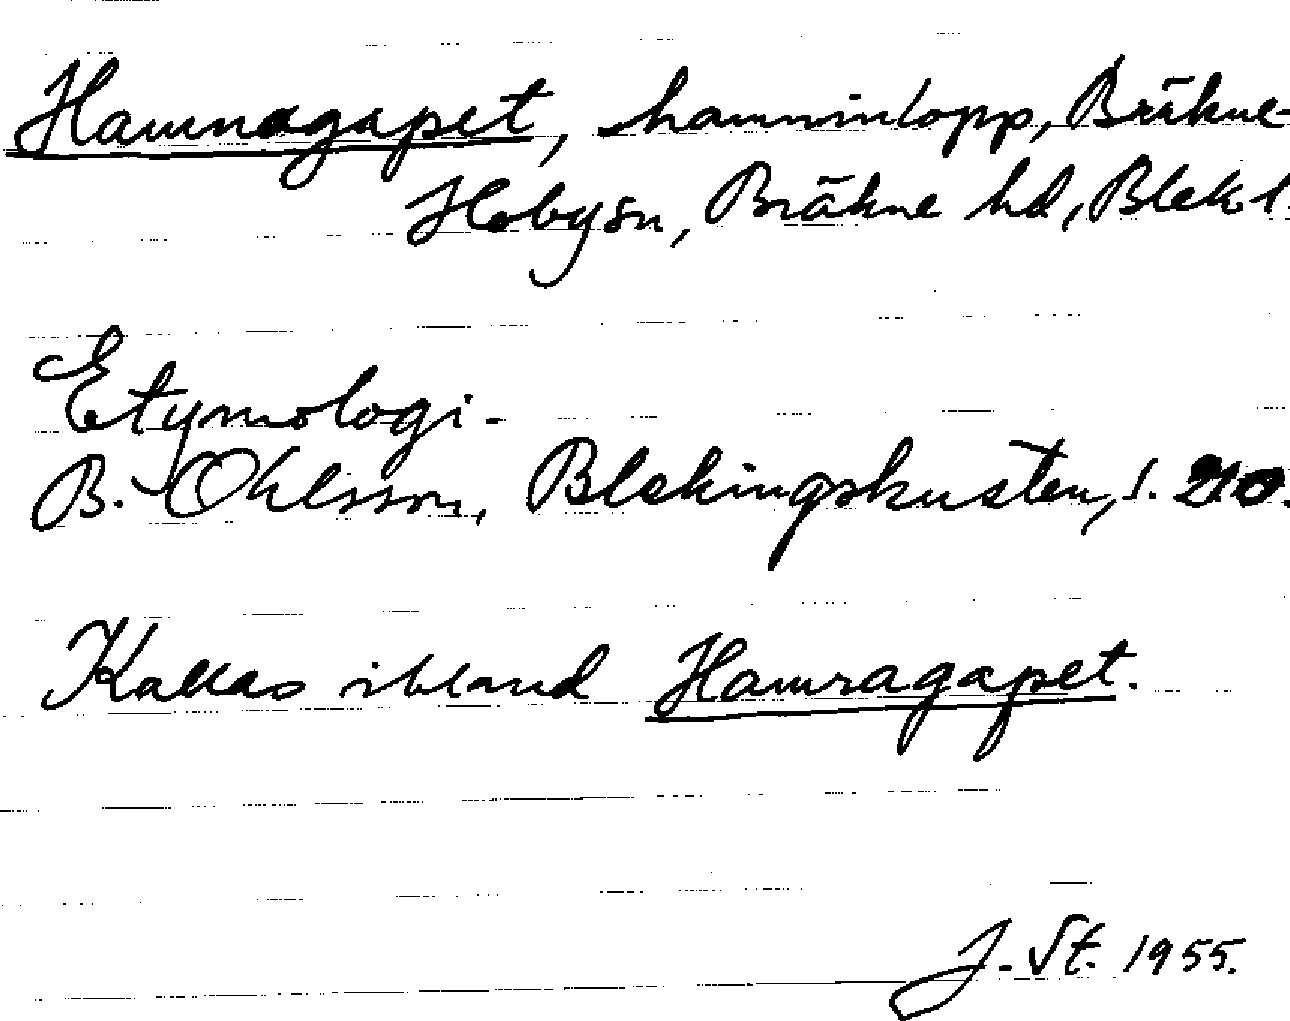 Hamnagapet, hamninlopp, Bräkne-
Hoby sn, Bräkne hd, Blek. l.
Etymologi.
B. Ohlsson, Blekingskusten, s. 210.
Kallas ibland Hamragapet.
J. St. 1955.